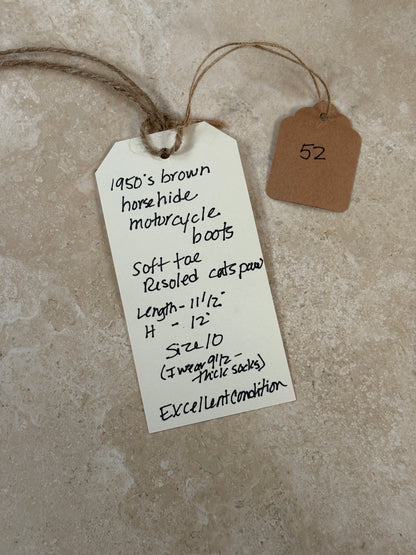 1950's brown
horsehide
motorcycle
boots
Soft toe
Resoled cats paw
Length - 11 1/2"
H - 12"
Size 10
(I wear 9 1/2 -
thick socks)
Excellent condition
52